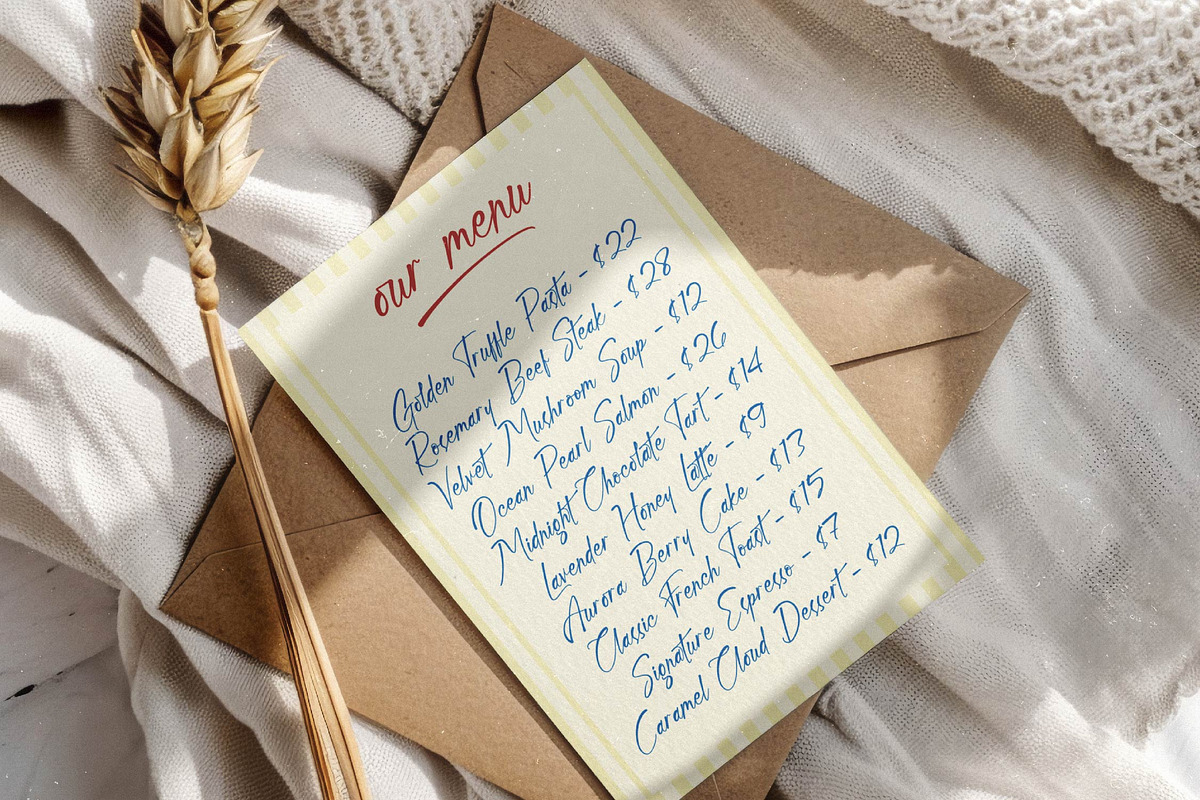 our menu
Golden Truffle Pasta - $22
Rosemary Beef Steak - $28
Velvet Mushroom Soup - $12
Ocean Pearl Salmon - $26
Midnight Chocolate Tart - $14
Lavender Honey Latte - $9
Aurora Berry Cake - $13
Classic French Toast - $15
Signature Espresso - $7
Caramel Cloud Dessert - $12